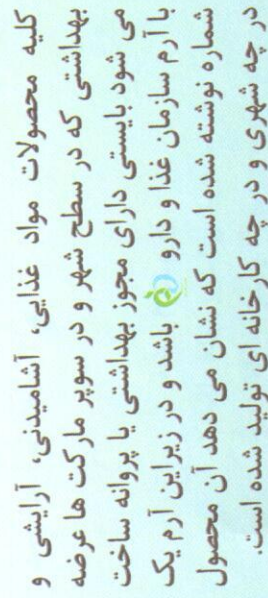 کلیه محصولات مواد غذایی، آشامیدنی، آرایشی و
بهداشتی که در سطح شهر و در سوپر مارکت ها عرضه
می شود بایستی دارای مجوز بهداشتی یا پروانه ساخت
با آرم سازمان غذا و دارو باشد و در زیراین آرم یک
شماره نوشته شده است که نشان می دهد آن محصول
در چه شهری و در چه کارخانه ای تولید شده است.